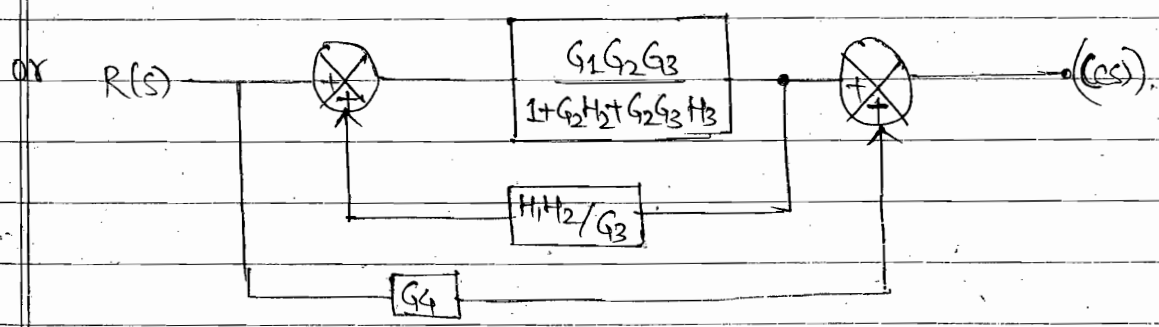 or R(S) + + G1G2G3 + + C(S).
1+G2H2+G2G3H3
H1H2/G3
G4